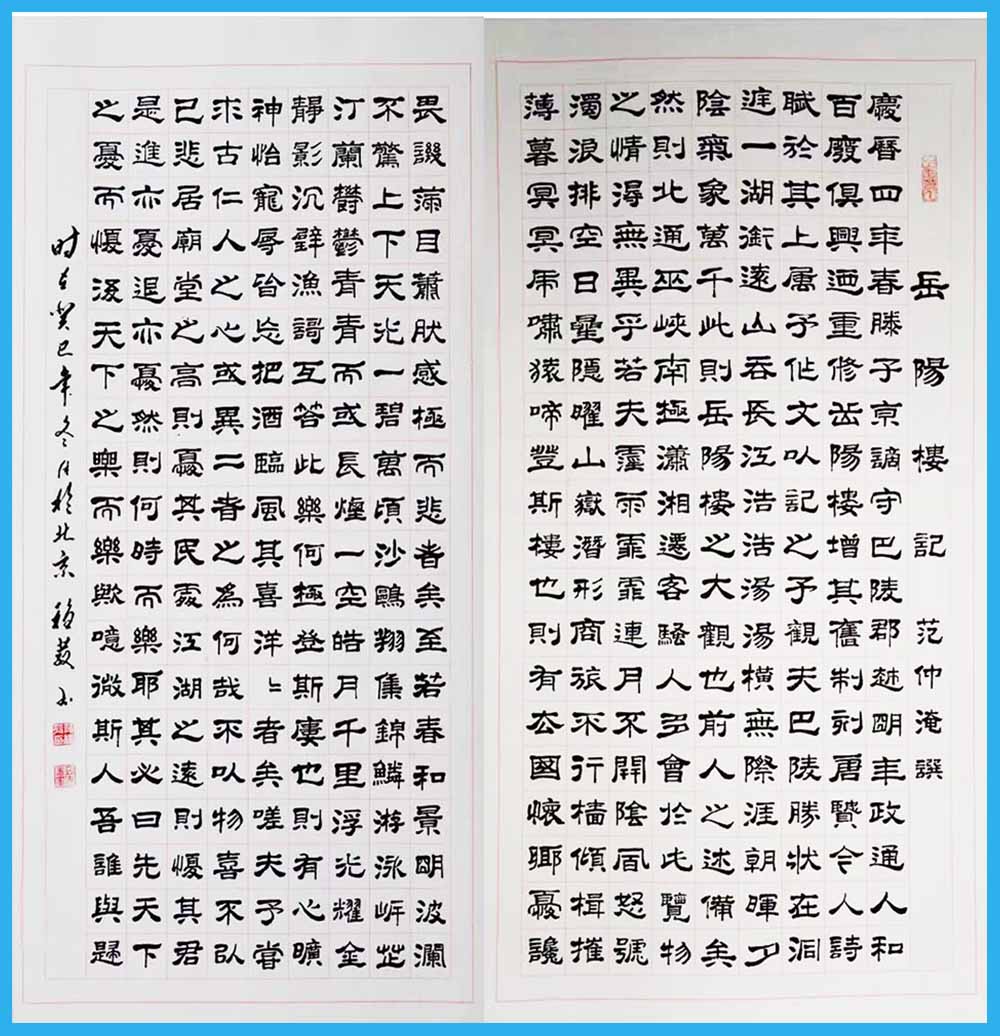 岳陽樓記 范仲淹譔
慶曆四年春滕子京謫守巴陵郡越明年政通人和
百廢俱興迺重修岳陽樓增其舊制刻唐賢今人詩
賦於其上属予作文以記之予觀夫巴陵勝狀在洞
庭一湖銜遠山吞長江浩浩湯湯橫無際涯朝暉夕
陰氣象萬千此則岳陽樓之大觀也前人之述備矣
然則北通巫峽南極瀟湘遷客騷人多會於此覽物
之情得無異乎若夫霪雨霏霏連月不開陰風怒號
濁浪排空日星隱曜山嶽潛形商旅不行檣傾楫摧
薄暮冥冥虎嘯猿啼登斯樓也則有去國懷鄉憂讒
畏譏滿目蕭然感極而悲者矣至若春和景明波瀾
不驚上下天光一碧萬頃沙鷗翔集錦鱗游泳岸芷
汀蘭鬱鬱青青而或長煙一空皓月千里浮光耀金
靜影沉璧漁歌互答此樂何極登斯樓也則有心曠
神怡寵辱皆忘把酒臨風其喜洋〻者矣嗟夫予嘗
求古仁人之心或異二者之為何哉不以物喜不以
己悲居廟堂之高則憂其民處江湖之遠則憂其君
是進亦憂退亦憂然則何時而樂耶其必曰先天下
之憂而憂後天下之樂而樂歟噫微斯人吾誰與歸
时在癸巳年冬月於北京 书